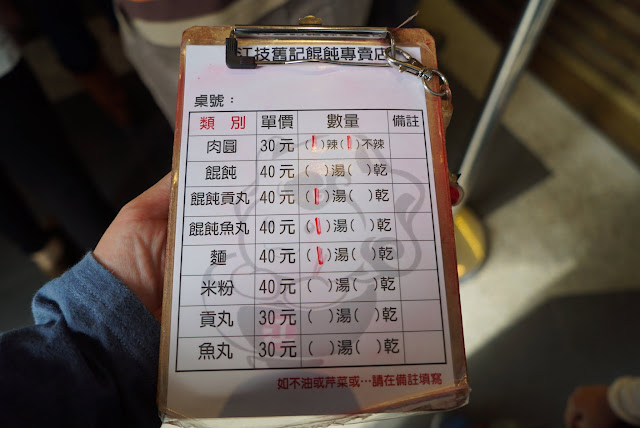 江技舊記餛飩專賣店
桌號：
類別 單價 數量 備註
肉圓 30元 ( )辣( )不辣
餛飩 40元 ( )湯( )乾
餛飩貢丸 40元 ( )湯( )乾
餛飩魚丸 40元 ( )湯( )乾
麵 40元 ( )湯( )乾
米粉 40元 ( )湯( )乾
貢丸 30元 ( )湯( )乾
魚丸 30元 ( )湯( )乾
如不油或芹菜或…請在備註填寫